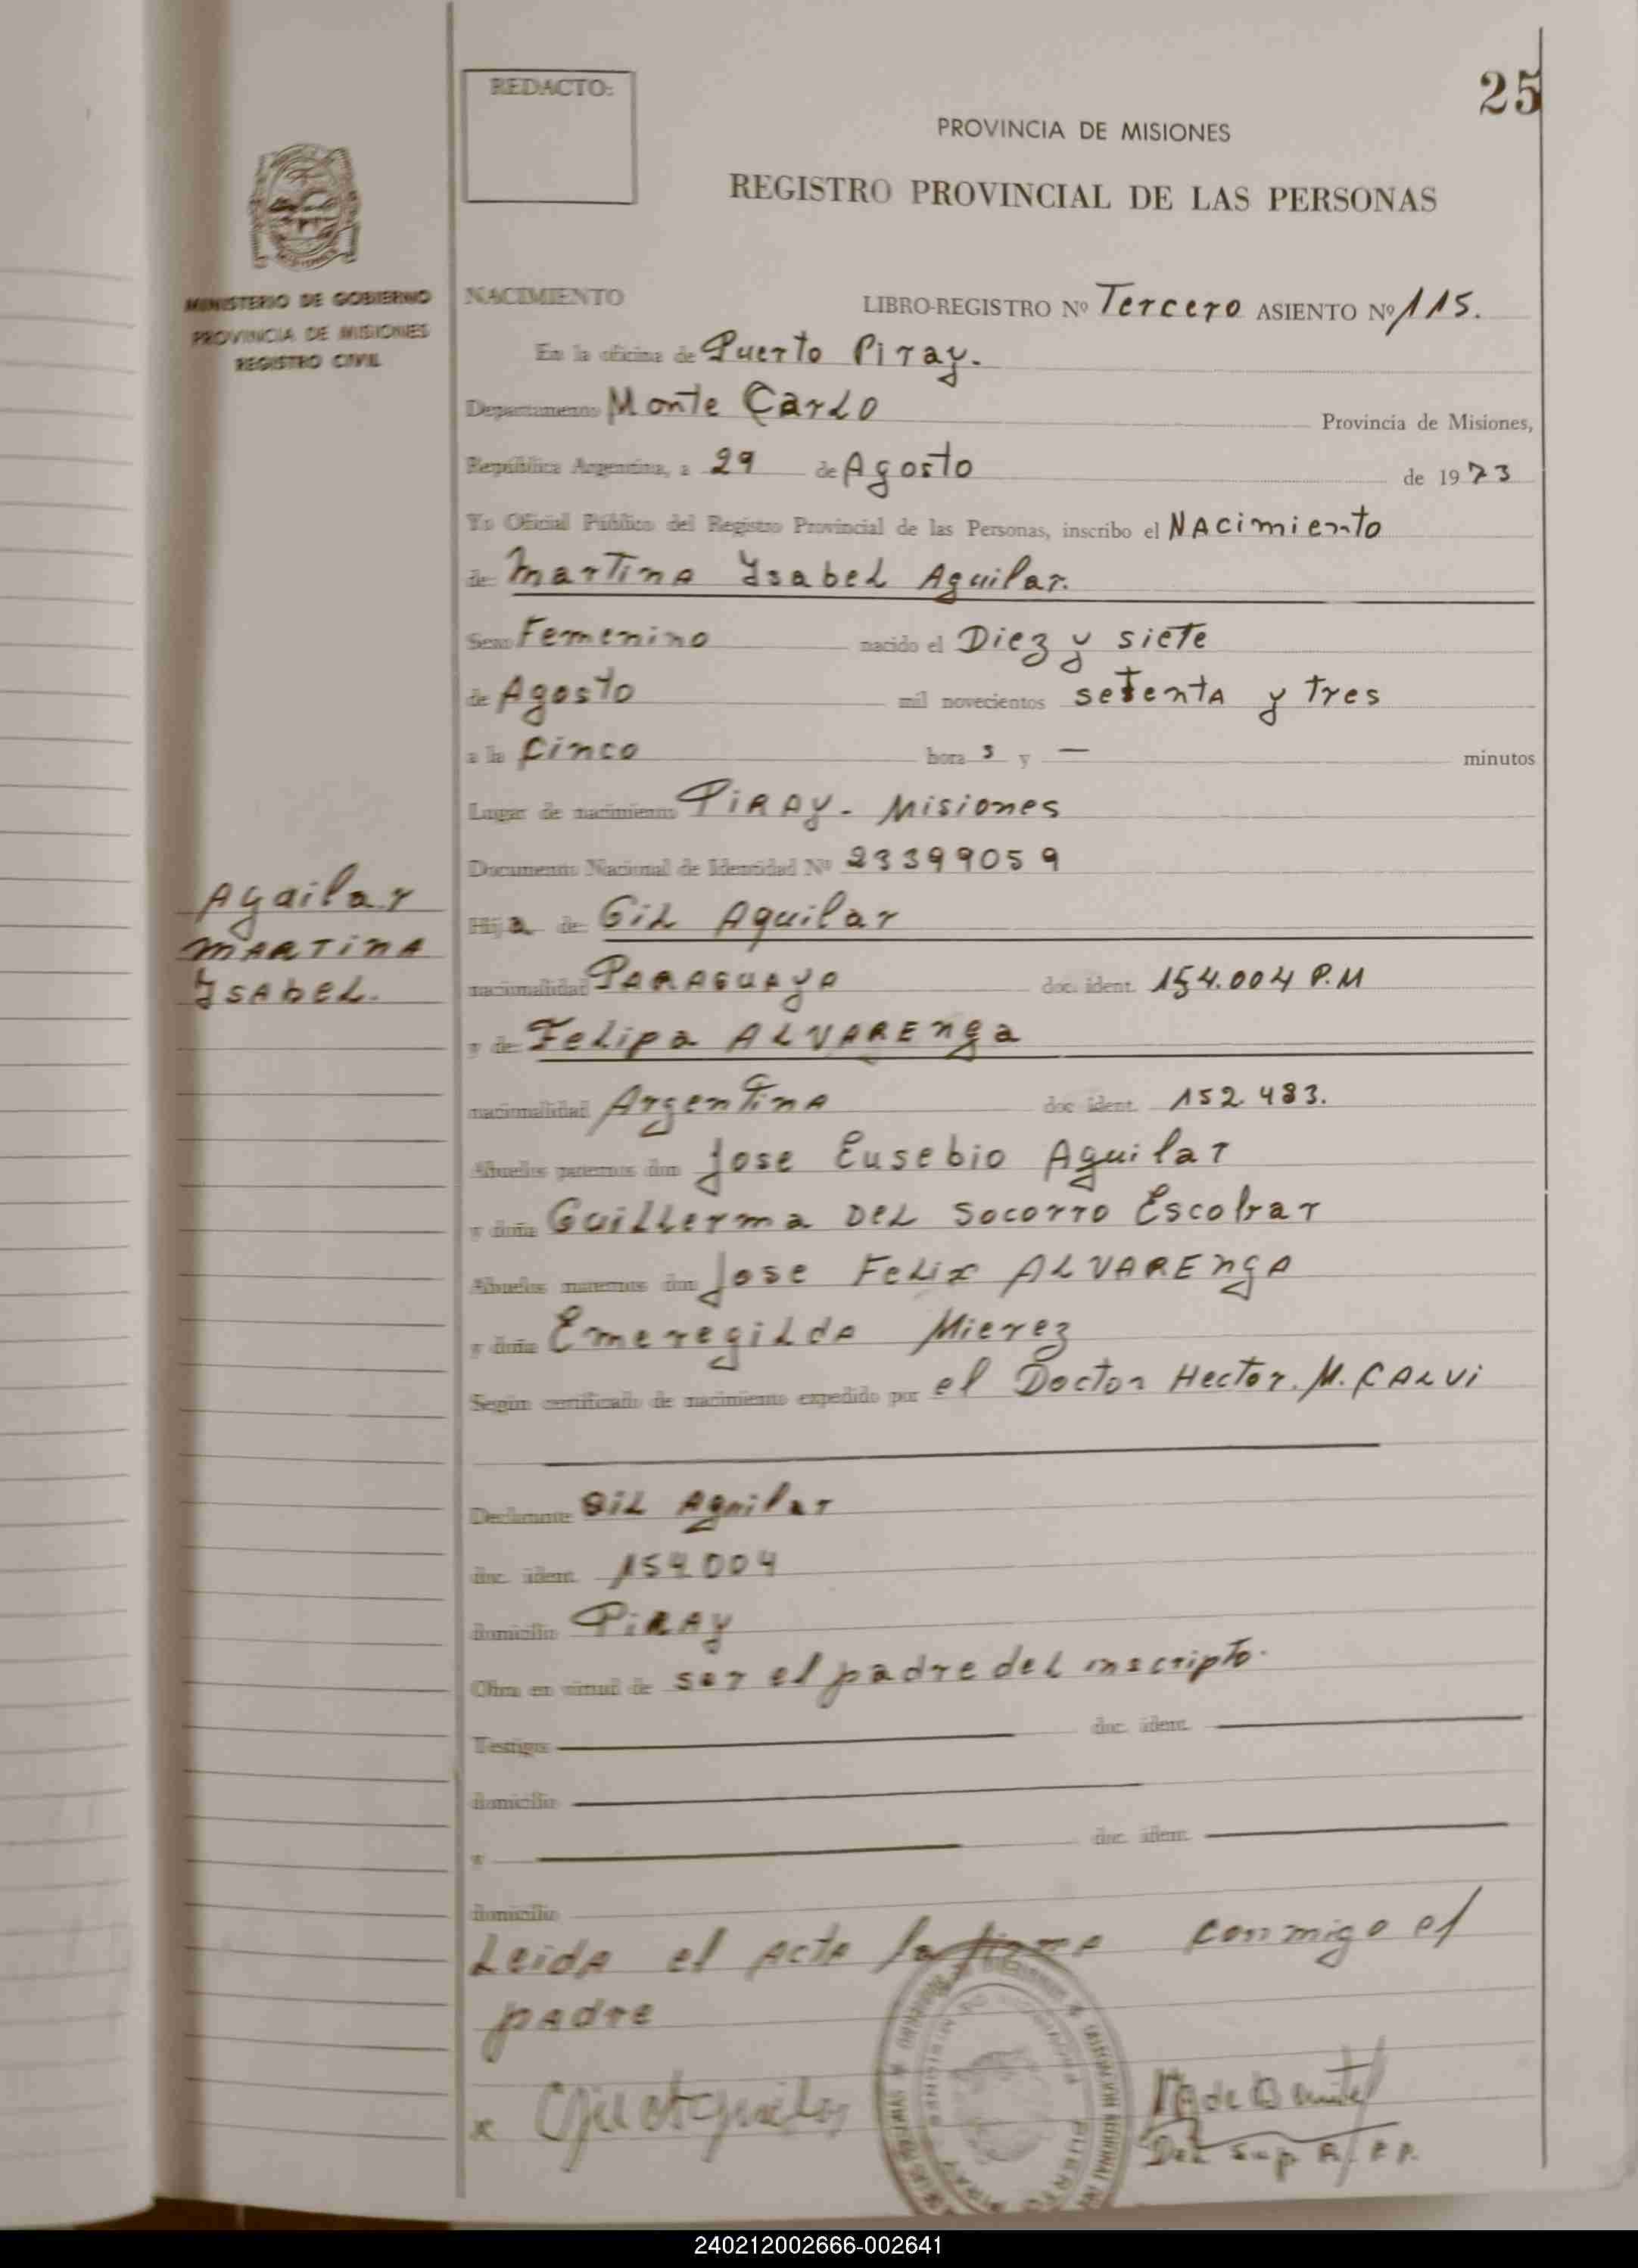 25
REDACTO:
PROVINCIA DE MISIONES
REGISTRO PROVINCIAL DE LAS PERSONAS
MINISTERIO DE GOBIERNO
PROVINCIA DE MISIONES
REGISTRO CIVIL
NACIMIENTO LIBRO-REGISTRO Nº Tercero ASIENTO Nº 115.
En la oficina de Puerto Piray.
Departamento Monte Carlo Provincia de Misiones,
República Argentina, a 29 de Agosto de 1973
Yo Oficial Público del Registro Provincial de las Personas, inscribo el NAcimiento
de Martina Ysabel Aguilar.
Sexo Femenino nacido el Diez y siete
de Agosto mil novecientos setenta y tres
a la Cinco hora s y — minutos
Lugar de nacimiento PiRAy - Misiones
Documento Nacional de Identidad Nº 23399059
Aguilar
MARTINA
YsAbel.
Hija de Gil Aguilar
nacionalidad PARAGUAyA doc. ident. 154.004 P.M
y de Felipa ALVARENga
nacionalidad ArgenTinA doc ident. 152.483.
Abuelos paternos don Jose Eusebio Aguilar
y doña Guillerma DEL Socorro Escobar
Abuelos maternos don Jose Felix ALVARENgA
y doña Emeregilda Mierez
Según certificado de nacimiento expedido por el Doctor Hector. M. CALVi
Declarante Gil Aguilar
doc. ident. 154004
domicilio PiRAy
Obra en virtud de ser el padre del inscripto.
Testigo doc. ident.
domicilio
y doc. ident.
domicilio
Leida el ActA la firma conmigo el
padre
x
Del Sup R. P.P.
240212002666-002641